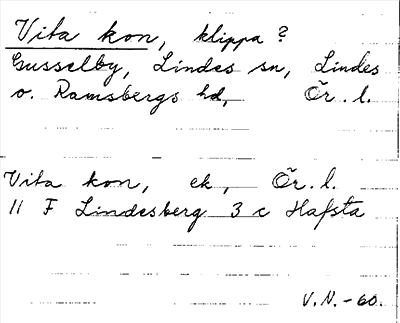 Vita kon, klippa?
Gusselby, Lindes sn, Lindes
o. Ramsbergs hd, Ör. l.
Vita kon, ek, Ör. l.
11 F Lindesberg 3 c Hafsta
V.N.-60.